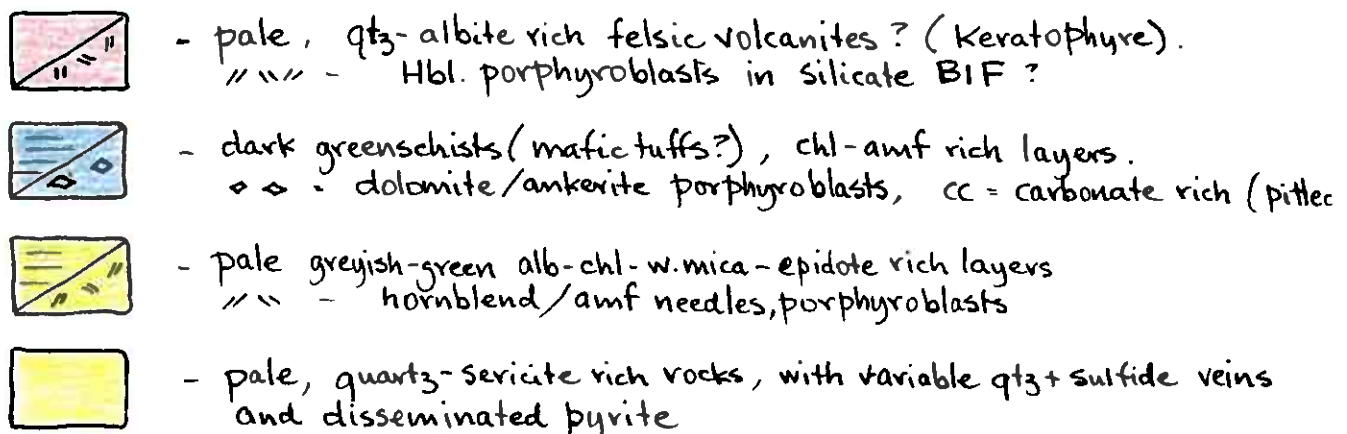 - pale, qtz-albite rich felsic volcanites? (Keratophyre).
// \\ // - Hbl. porphyroblasts in silicate BIF?
- dark greenschists (mafic tuffs?), chl-amf rich layers.
◇ ◇ - dolomite/ankerite porphyroblasts, cc = carbonate rich (pitted
- pale greyish-green alb-chl-w.mica-epidote rich layers
// \\ - hornblend/amf needles, porphyroblasts
- pale, quartz-sericite rich rocks, with variable qtz + sulfide veins
and disseminated pyrite